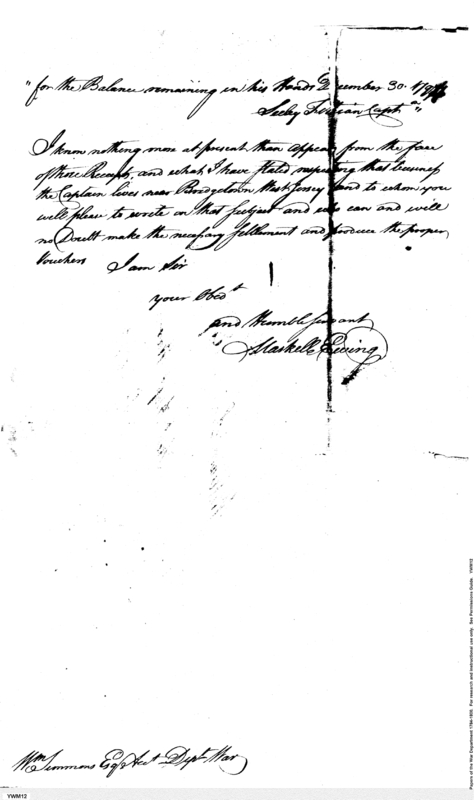 "for the Balance remaining in his Hands December 30. 1794
Seeley Fithian Capta."
I know nothing more at present than appears from the face
of those Receipts, and what I have stated respecting that business
the Captain lives near Bridgetown West Jersey and to whom you
will please to write on that subject and who can and will
no Doubt make the necessary settlement and produce the proper
Vouchers
I am Sir
your Obedt
and Humble Servant
Maskell Ewing
Wm Simmons Esqr Acct Dept War
Papers of the War Department 1784-1800. For research and instructional use only. See Permissions Guide. YWM12
YWM12